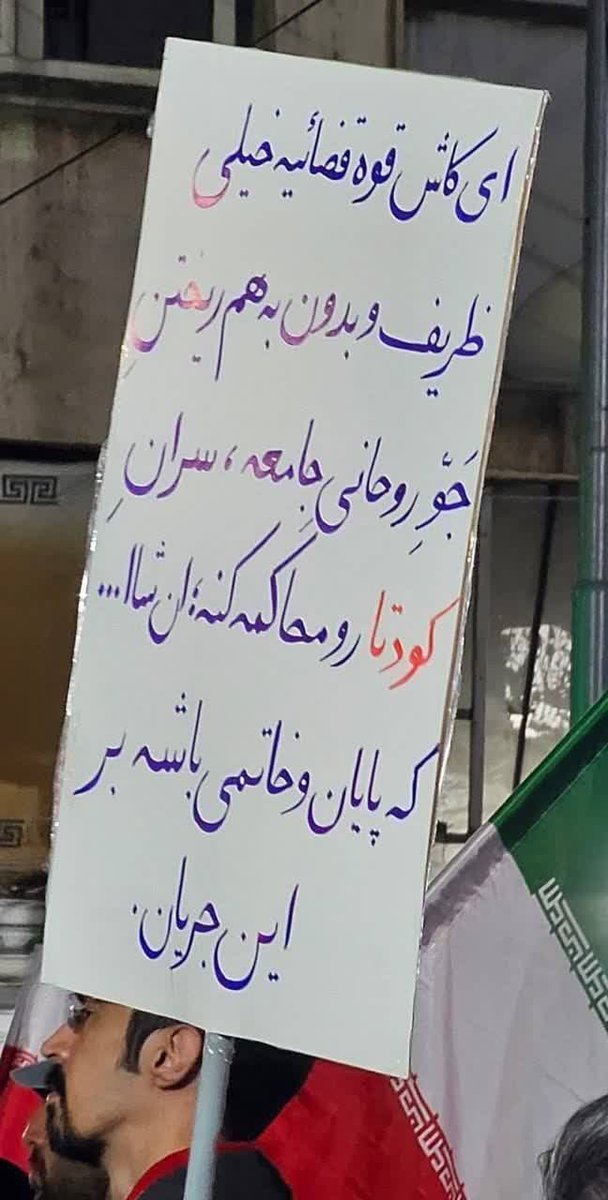 ای کاش قوهٔ قضائیه خیلی
ظریف و بدون به هم ریختنِ
جَوِّ روحانیِ جامعه، سرانِ
کودتا رو محاکمه کنه؛ ان شاا...
که پایان و خاتمی باشه بر
این جریان.